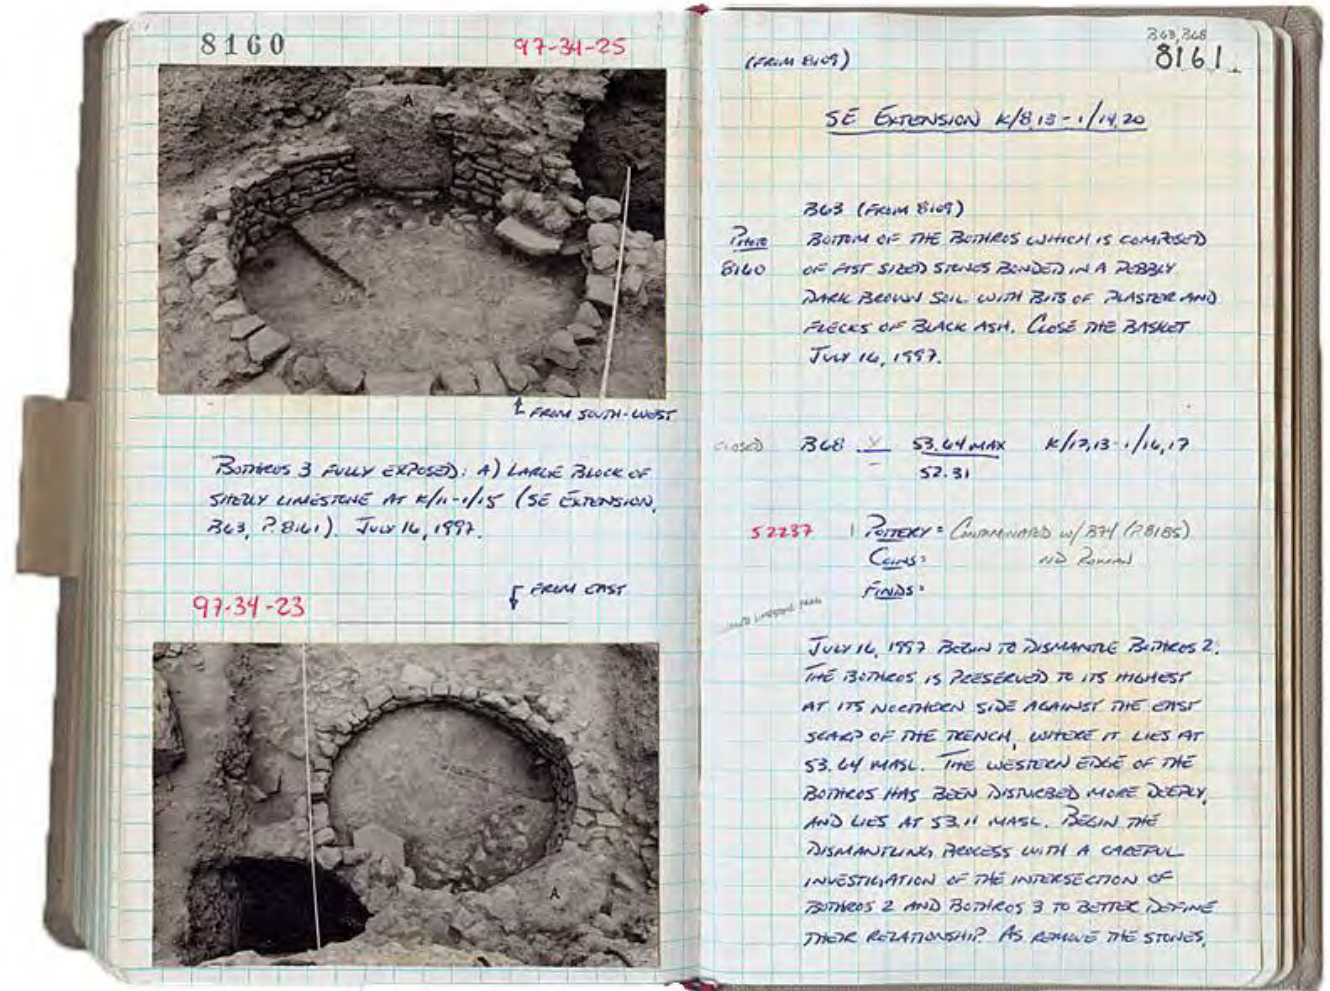 8160
97-34-25
A
↑ FROM SOUTH-WEST
BOTHROS 3 FULLY EXPOSED: A) LARGE BLOCK OF
SHELLY LIMESTONE AT K/11-1/15 (SE EXTENSION,
B63, P.8161). JULY 16, 1997.
↓ FROM EAST
97-34-23
A
B63, B68
8161
(FROM 8109)
SE EXTENSION K/8,13-1/14,20
B63 (FROM 8109)
PHOTO
8160
BOTTOM OF THE BOTHROS WHICH IS COMPOSED
OF FIST SIZED STONES BONDED IN A PEBBLY
DARK BROWN SOIL WITH BITS OF PLASTER AND
FLECKS OF BLACK ASH. CLOSE THE BASKET
JULY 16, 1997.
CLOSED B68 53.64 MAX K/17,13-1/16,17
52.31
52237 1 POTTERY = CONTAMINATED W/ B74 (P.8185)
COINS= NO ROMAN
FINDS=
LIMESTONE
JULY 16, 1997 BEGIN TO DISMANTLE BOTHROS 2.
THE BOTHROS IS PRESERVED TO ITS HIGHEST
AT ITS NORTHERN SIDE AGAINST THE EAST
SCARP OF THE TRENCH, WHERE IT LIES AT
53.64 MASL. THE WESTERN EDGE OF THE
BOTHROS HAS BEEN DISTURBED MORE DEEPLY,
AND LIES AT 53.11 MASL. BEGIN THE
DISMANTLING PROCESS WITH A CAREFUL
INVESTIGATION OF THE INTERSECTION OF
BOTHROS 2 AND BOTHROS 3 TO BETTER DEFINE
THEIR RELATIONSHIP. AS REMOVE THE STONES,